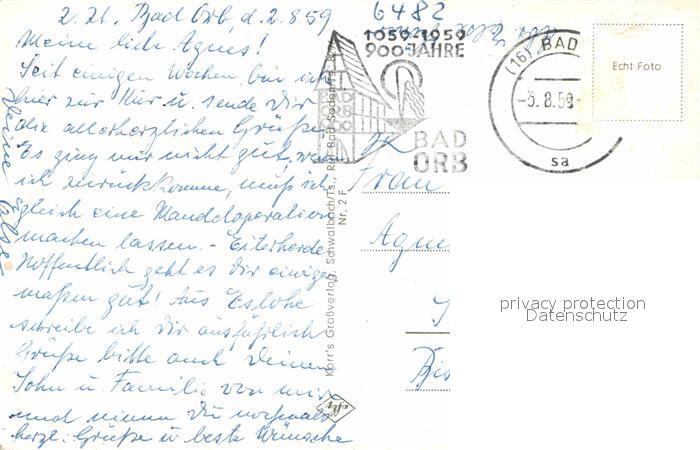 z. Zt. Bad Orb, d. 2.8.59
Meine liebe Agnes!
Seit einigen Wochen bin ich
hier zur Kur u. sende Dir
die allerherzlichsten Grüße.
Es ging mir nicht gut, wenn
ich zurückkomme, muß ich
gleich eine Mandeloperation
machen lassen. - Eiterherde
Hoffentlich geht es Dir einiger
maßen gut! Aus Eslohe
schreibe ich Dir ausführlich
Grüße bitte auch Deinen
Sohn u. Familie von mir
und nimm Du nochmals
herzl. Grüße u beste Wünsche
Deine
6482
1059-1959
900 JAHRE
BAD
ORB
(16) BAD
-3.8.59-
sa
Echt Foto
Frau
Agne
Korr's Großverlag, Schwalbach/Ts., Ruf Bad Soden/Ts.
Nr. 2 F
Agfa
privacy protection
Datenschutz